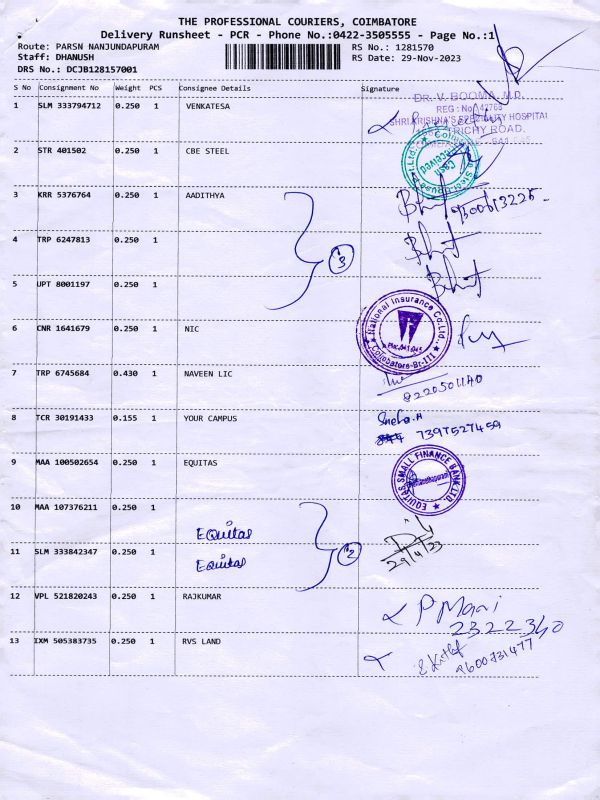 THE PROFESSIONAL COURIERS, COIMBATORE
Delivery Runsheet - PCR - Phone No.:0422-3505555 - Page No.:1
Route: PARSN NANJUNDAPURAM RS No.: 1281570
Staff: DHANUSH RS Date: 29-Nov-2023
DRS No.: DCJB128157001
S No Consignment No Weight PCS Consignee Details Signature
1 SLM 333794712 0.250 1 VENKATESA
DR. V. BOOMA, M.D.
REG: No 42768
SHRI KRISHNA'S SPECIALITY HOSPITAL
TRICHY ROAD.
2 STR 401502 0.250 1 CBE STEEL
3 KRR 5376764 0.250 1 AADITHYA
4 TRP 6247813 0.250 1
3
5 UPT 8001197 0.250 1
6 CNR 1641679 0.250 1 NIC
National Insurance Co.Ltd.
7 TRP 6745684 0.430 1 NAVEEN LIC
8220501140
8 TCR 30191433 0.155 1 YOUR CAMPUS
Sneha.A
7397527459
9 MAA 100502654 0.250 1 EQUITAS
EQUITAS SMALL FINANCE BANK LTD.
10 MAA 107376211 0.250 1
Equitas
11 SLM 333842347 0.250 1
Equitas
2
12 VPL 521820243 0.250 1 RAJKUMAR
P Mani
2322340
13 IXM 505383735 0.250 1 RVS LAND
9600731477